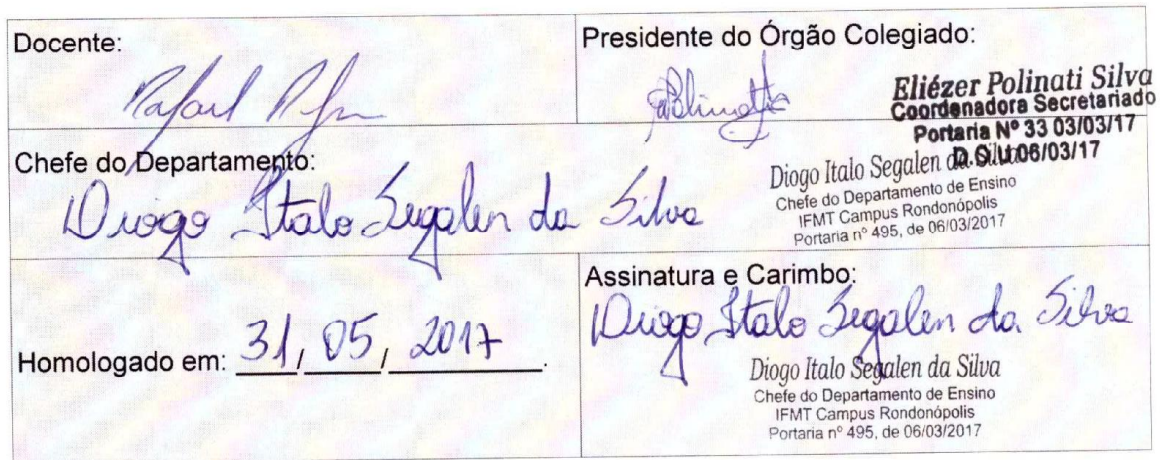 Docente:
Rafael
Presidente do Órgão Colegiado:
Eliézer Polinati Silva
Coordenadora Secretariado
Portaria Nº 33 03/03/17
D.O.U.06/03/17
Chefe do Departamento:
Diogo Italo Segalen da Silva
Diogo Italo Segalen da Silva
Chefe do Departamento de Ensino
IFMT Campus Rondonópolis
Portaria nº 495, de 06/03/2017
Homologado em: 31, 05, 2017.
Assinatura e Carimbo:
Diogo Italo Segalen da Silva
Diogo Italo Segalen da Silva
Chefe do Departamento de Ensino
IFMT Campus Rondonópolis
Portaria nº 495, de 06/03/2017